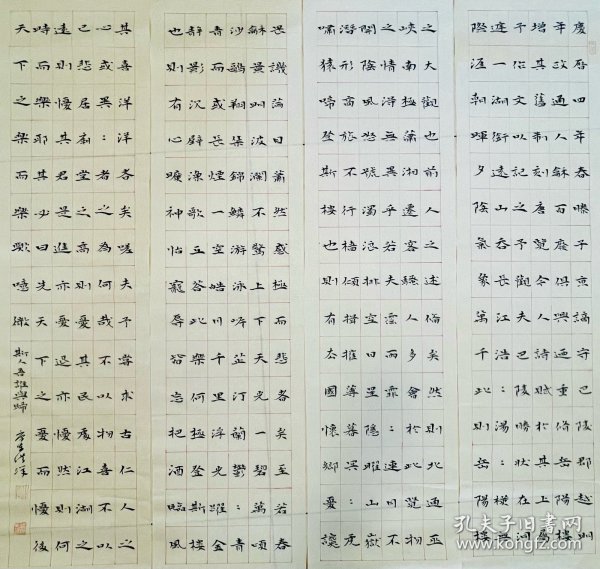 慶曆四年春滕子京謫守巴陵郡越明
年政通人和百廢俱興乃重修岳陽樓
增其舊制刻唐賢今人詩賦於其上屬
予作文以記之予觀夫巴陵勝狀在洞
連一湖銜遠山吞長江浩：湯：橫無
際涯朝暉夕陰氣象萬千此則岳陽樓
之大觀也前人之述備矣然則北通巫
峽南極瀟湘遷客騷人多會於此覽物
之情得無異乎若夫霪雨霏：連月不
開陰風怒號濁浪排空日星隱曜山嶽
潛形商旅不行檣傾楫摧薄暮冥：虎
嘯猿啼登斯樓也則有去國懷鄉憂讒
畏譏滿目蕭然感極而悲者矣至若春
穌景明波瀾不驚上下天光一碧萬頃
沙鷗翔集錦鱗游泳岸芷汀蘭鬱：青
青而或長煙一空皓月千里浮光躍金
靜影沉璧漁歌互答此樂何極登斯樓
也則有心曠神怡寵辱皆忘把酒臨風
其喜洋洋者矣嗟夫予嘗求古仁人之
心或異：者之為何哉不以物喜不以
己悲居廟堂之高則憂其民處江湖之
遠則憂其君是進亦憂退亦憂然則何
時而樂耶其必曰先天下之憂而憂後
天下之樂而樂歟噫微斯人吾誰與歸
孔夫子旧书网
www.kongfz.com